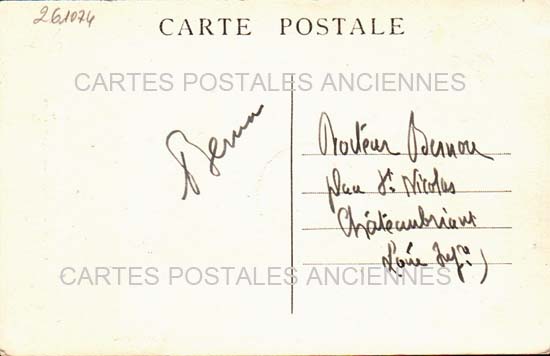 261074
CARTE POSTALE
CARTES POSTALES ANCIENNES
Bernou
Docteur Bernou
place St. Nicolas
Châteaubriant
Loire Infre)
CARTES POSTALES ANCIENNES